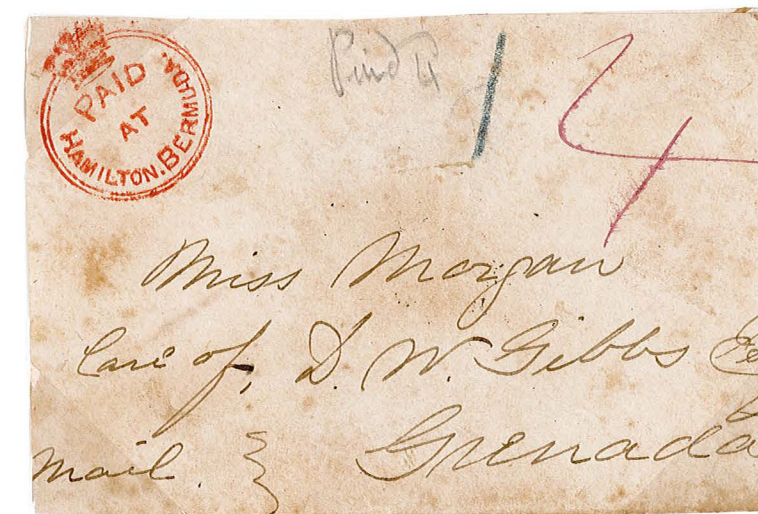 PAID
AT
HAMILTON. BERMUDA.
Paid
1 4
Miss Morgan
Care of, D. W. Gibbs
Grenada
Mail.